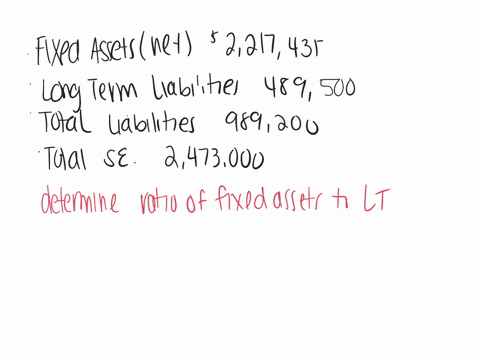 Fixed Assets (net) $ 2,217,435
Long Term Liabilities 489,500
Total Liabilities 989,200
Total SE. 2,473.000
determine ratio of fixed assets to LT